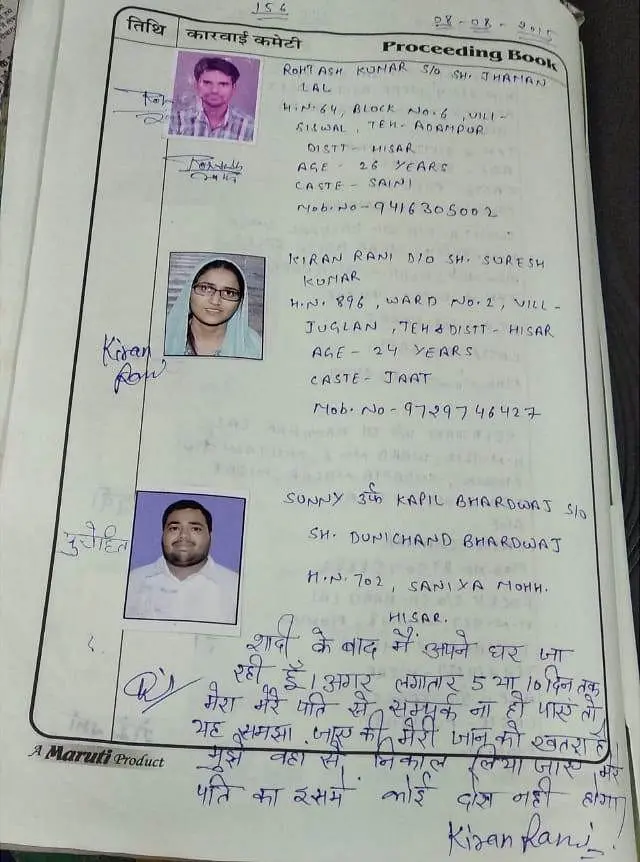 156
08-08-2015
तिथि कारवाई कमेटी Proceeding Book
ROHTASH KUMAR S/O SH. JHAMAN
LAL
H.N. 64, BLOCK NO. 6, VILL-
SISWAL, TEH- ADAMPUR
DISTT- HISAR
AGE - 26 YEARS
CASTE - SAINI
Mob. No - 9416305002
KIRAN RANI D/O SH. SURESH
KUMAR
H.N. 896, WARD NO. 2, VILL-
JUGLAN, TEH & DISTT - HISAR
Kiran
Rani
AGE - 24 YEARS
CASTE - JAAT
Mob. No - 9729746427
SUNNY उर्फ KAPIL BHARDWAJ S/O
पुरोहित
SH. DUNICHAND BHARDWAJ
H.N. 702, SANIYA MOHH.
HISAR.
शादी के बाद मैं अपने घर जा
रही हूँ। अगर लगातार 5 या 10 दिन तक
मेरा मेरे पति से सम्पर्क ना हो पाए तो
यह समझा जाए की मेरी जान को खतरा है
मुझे वहा से निकाल लिया जाए मेरे
पति का इसमे कोई दोस नही होगा।
Kiran Rani
A Maruti Product